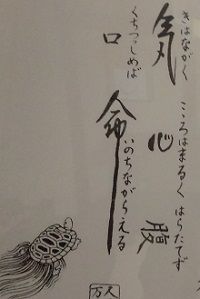 きはながく こころはまるく はらたてず
氣 心 腹
くちつゝしめば いのちながらえる
口 命
万人